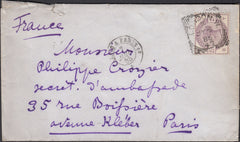 France
Monsieur
Philippe Crozier
secrét. d'ambassade
35 rue Boissière
avenue Kléber Paris